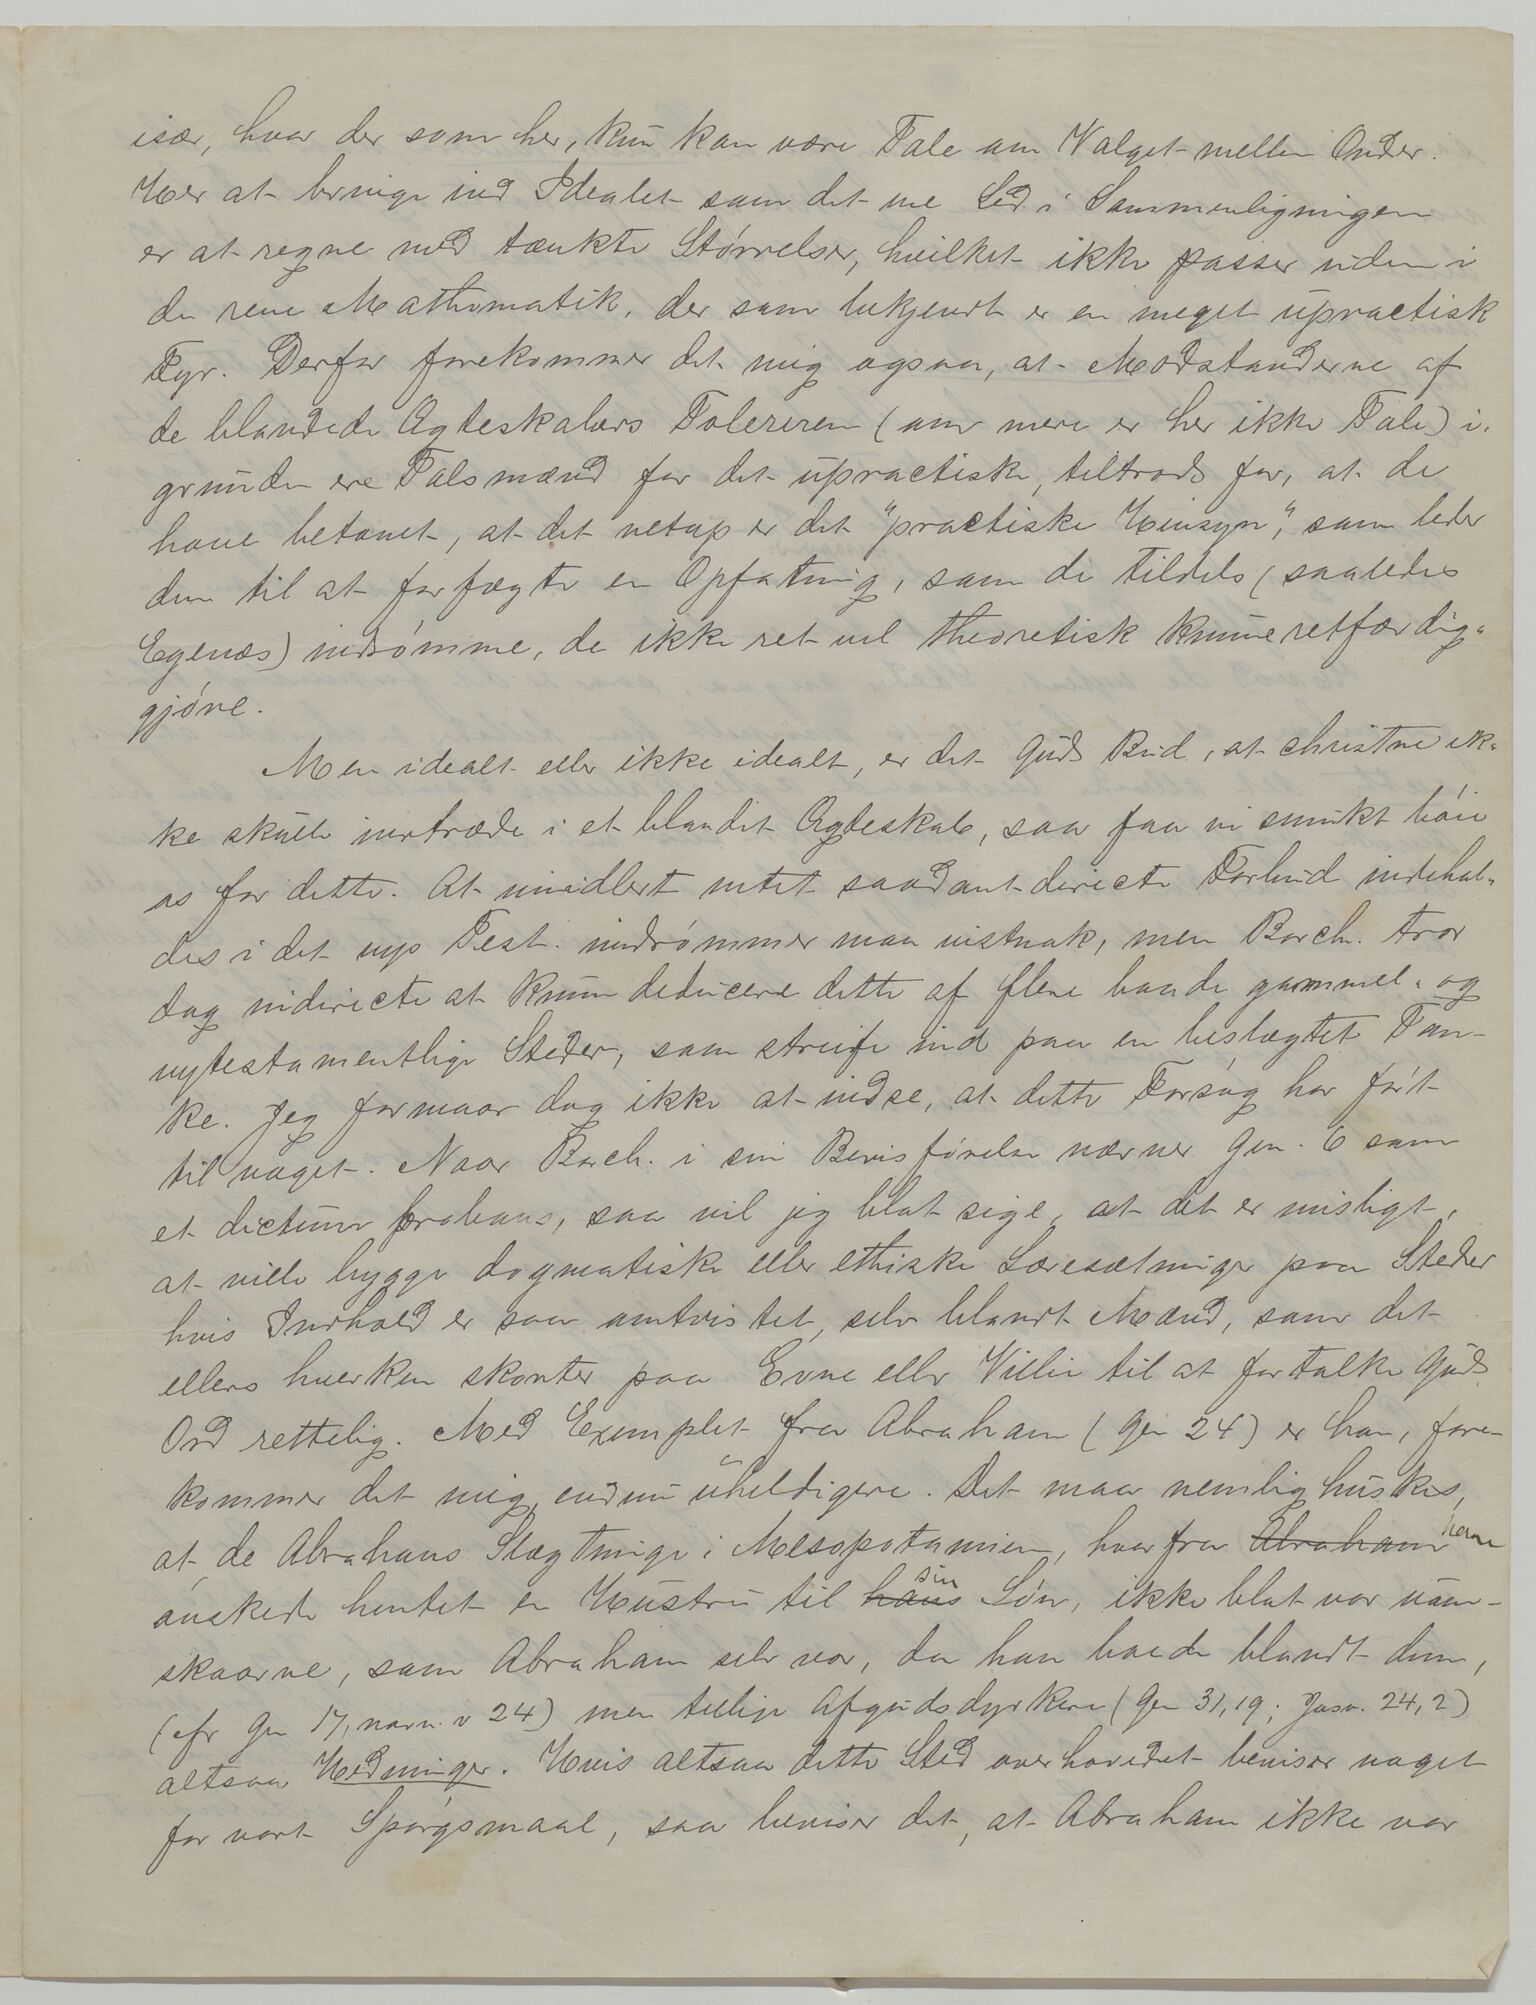 især, hvor der som her, kun kan være Tale om Valget mellem Onder.
Her at bringe ind Idealet som det ene Led i Sammenligningen
er at regne med tænkte Størrelser, hvilket ikke passer uden i
den rene Mathematik, der som bekjendt er en meget upractisk
Fyr. Derfor forekommer det mig ogsaa, at Modstanderne af
de blandede Ægteskabers Tolereren (om mere er her ikke Tale) i
grunden ere Talsmænd for det upractiske, tiltrods for, at de
have betonet, at det netop er det "practiske Hensyn", som leder
dem til at forfægte en Opfatning, som de tildels (saaledes
Egenæs) indrømme, de ikke ret vel theoretisk kunne retfærdig-
gjøre.
Men idealt eller ikke idealt, er det Guds Bud, at christne ik-
ke skulle indtræde i et blandet Ægteskab, saa faa vi smukt bøie
os for dette. At imidlert intet saadant directe Forbud indehol-
des i det nye Test. indrømmer man vistnok, men Borch. tror
dog indirecte at kunne deducere dette af flere baade gammel- og
nytestamentlige Steder, som streife ind paa en beslægtet Tan-
ke. Jeg formaar dog ikke at indse, at dette Forsøg har ført
til noget. Naar Borch. i sin Bevisførelse nævner Gen. 6 som
et dictum probans, saa vil jeg blot sige, at det er misligt,
at ville bygge dogmatiske eller ethiske Læresætninger paa Steder
hvis Indhold er saa omtvistet, selv blandt Mænd, som det
ellers hverken skorter paa Evne eller Villie til at fortolke Guds
Ord rettelig. Med Exemplet fra Abraham (Gen 24) er han, fore-
kommer det mig, endnu uheldigere. Det maa nemlig huskes,
at de Abrahams Slægtninge i Mesopotamien, hvorfra Abraham han
ønskede hentet en Hustru til hans sin Søn, ikke blot var uom-
skaarne, som Abraham selv var, da han boede blandt dem,
(cfr Gen 17, navn. v 24) men tillige Afgudsdyrkere (Gen 31,19; Josv. 24,2)
altsaa Hedninger. Hvis altsaa dette Sted overhovedet beviser noget
for vort Spørgsmaal, saa beviser det, at Abraham ikke var